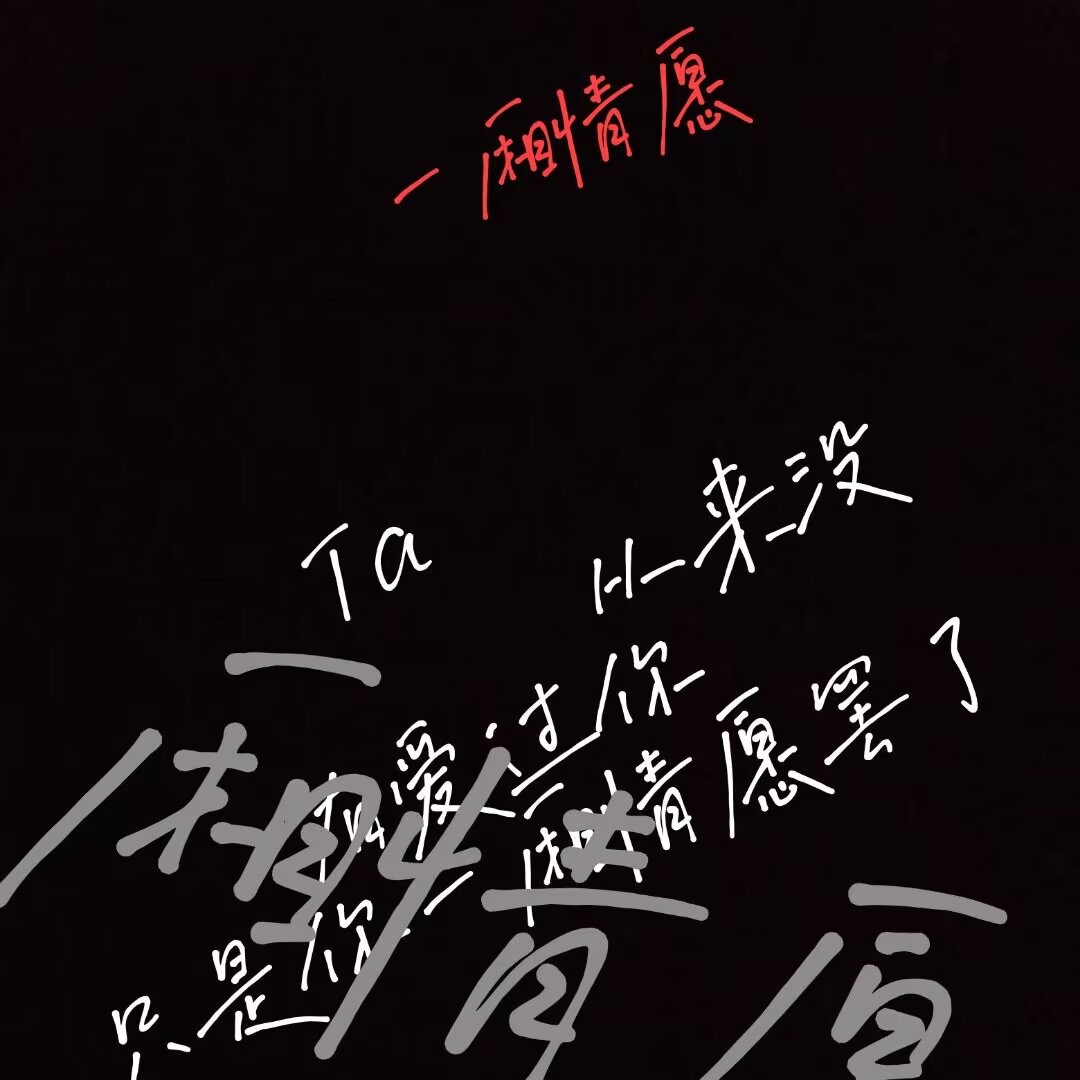 一厢情愿
Ta 从来没
爱过你
只是你一厢情愿罢了
一
厢情